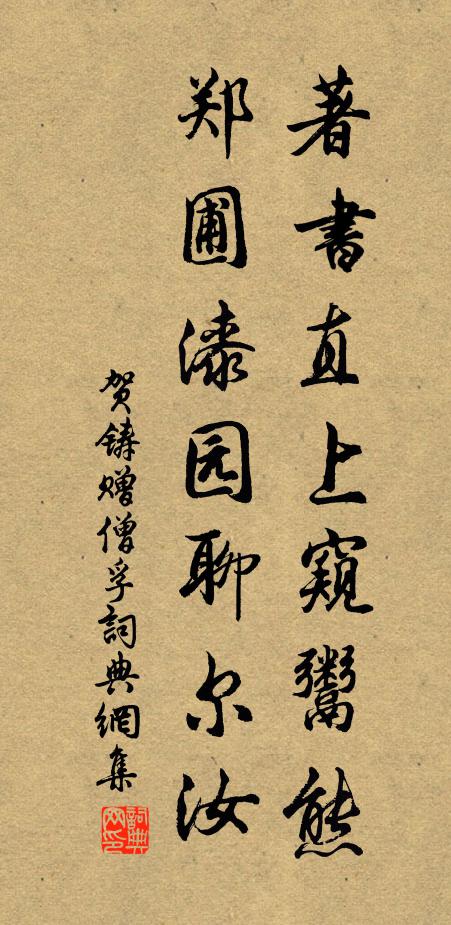 著書直上窺鬻熊
郑圃漆园聊尔汝
贺鋳赠僧孚詞典網集
詞典网印